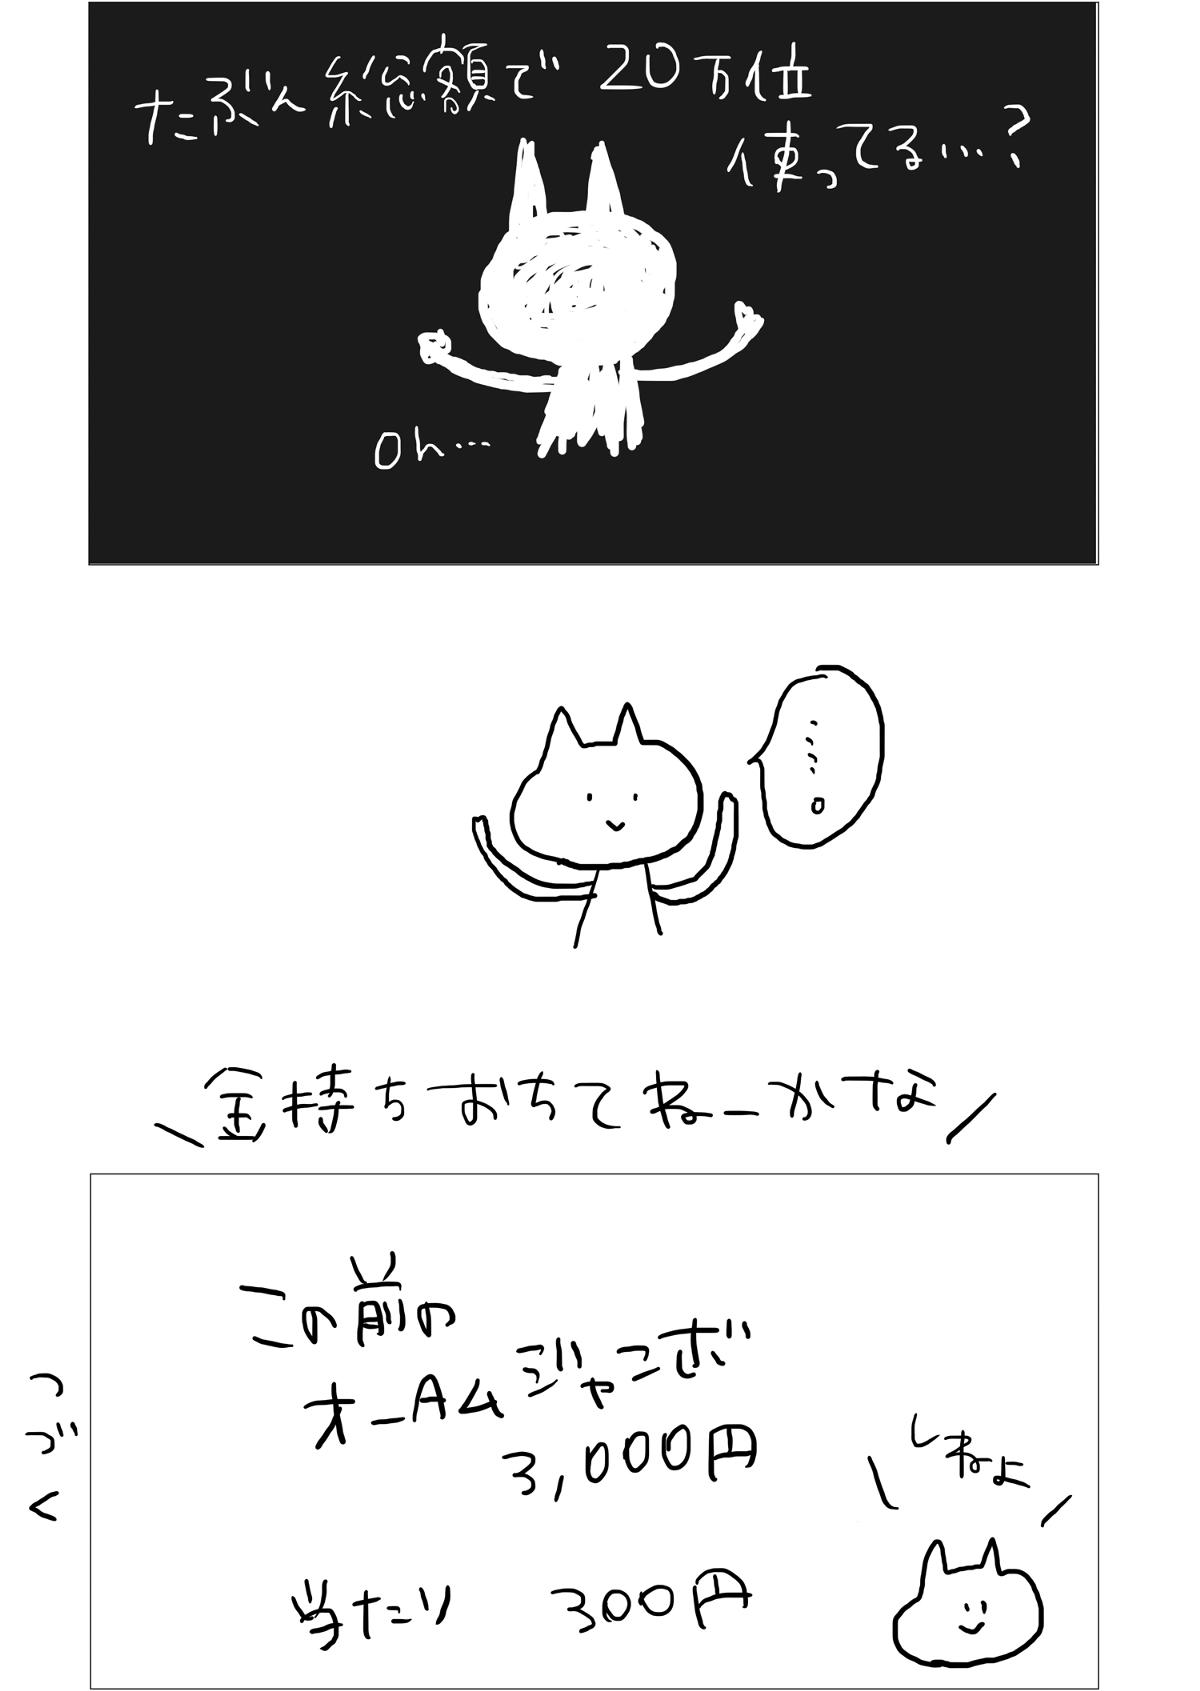 たぶん総額で20万位
使ってる…?
Oh…
…。
金持ちおちてねーかな
この前の
オータムジャンボ
3,000円
当たり 300円
しねよ
つづく